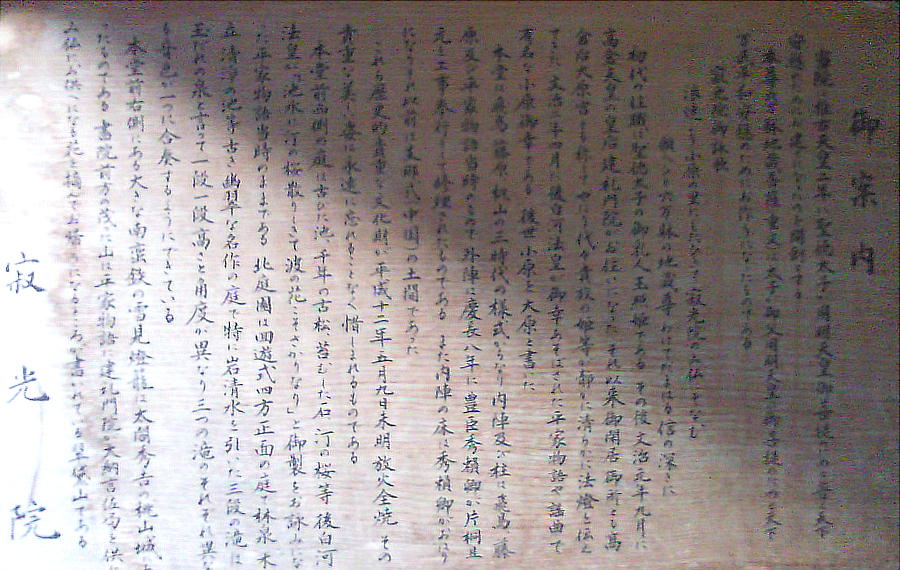 御案内
当院は推古天皇二年に聖徳太子が御父用明天皇御菩提のため
安穏のためにお建て
本尊 地蔵菩薩 は太子が御父用明天皇の御菩提のためと天下
万民の ためにお作りになったものである
寂光院御詠歌
小原の里にたたずみて寂光院の み仏をおがむ
六万体の地蔵尊わけてたまはる信の深さに
初代の住職は聖徳太子の御乳人玉照姫である その後文治元年九月に
高倉天皇の皇后建礼門院がお住いになった それ以来御閑居御所とも高
倉大原宮とも称し 代々貴族の姫等が静かに清らかに法燈を伝え
てきた 文治二年四月に後白河法皇が御幸あそばされた平家物語や謡曲で
有名な小原御幸である 後世小原を大原と書いた
本堂は飛鳥 藤原 桃山の三時代の様式からなり 内陣及び柱は飛鳥 藤
原及び平家物語当時のままで 外陣は慶長八年に豊臣秀頼卿が片桐且
元を工事奉行として修理されたものである また内陣の床は秀頼卿がお
になりそれ以前は支那式(中国)の土間であった
これら歴史的貴重な文化財が平成十二年五月九日未明放火全焼 その
貴重な美しい姿は永遠に忘れることなく惜しまれるものである
本堂前西側の庭は古びた池 千年の古松 苔むした石 汀の桜等 後白河
法皇が「池水に汀の桜散りしきて波の花こそさかりなり」と御製をお詠みにな
た平家物語当時のままである 北庭園は回遊式四方正面の庭で林泉 木
立 清浄の池等古き幽翠な名作の庭で特に岩清水を引いた三段の滝は
玉だれの泉と言って一段一段高さと角度が異なり三つの滝のそれぞれ異な
る音色が一つに合奏するようにできている
本堂前右側にある大きな南蛮鉄の雪見燈籠は太閤秀吉の桃山城
たものである 書院前方の茂った山は平家物語に建礼門院が大納言佐局と供
み仏にお供へになる花を摘んで
寂光院